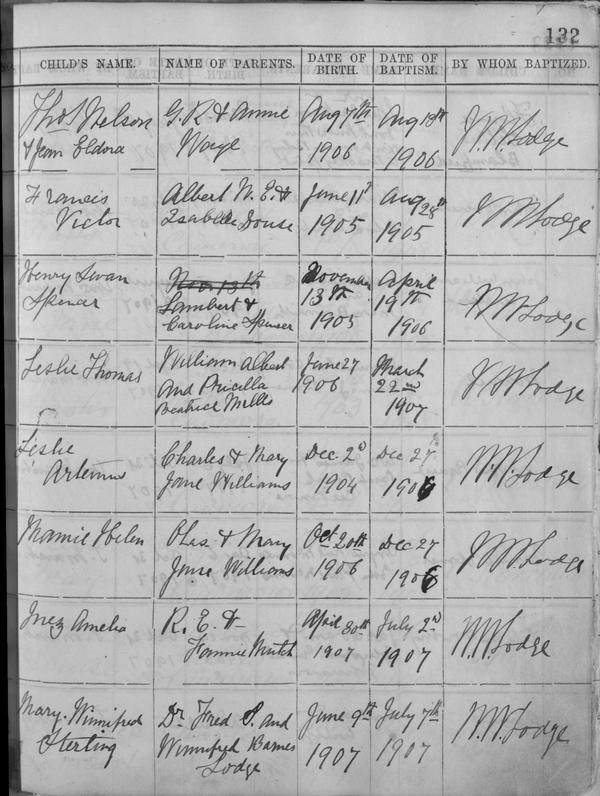 132
CHILD'S NAME. NAME OF PARENTS. DATE OF BIRTH. DATE OF BAPTISM. BY WHOM BAPTIZED.
Thos Nelson G. R. & Annie Aug 7th Aug 18th W.W. Lodge
& Jean Eldora 1906 1906
Francis Albert W. E. & June 11th Aug 28th W.W. Lodge
Victor Isabelle Douse 1905 1905
Henry Nov 13th April W.W. Lodge
Lambert & 13th 19th
Caroline 1905 1906
Leslie Thomas William Albert June 27 March W.W. Lodge
and Pricilla 1906 22nd
Beatrice Mills 1907
Leslie Charles & Mary Dec 2d Dec 27 W.W. Lodge
Artemus Jane Williams 1904 1906
Mamie Helen Chas. & Mary Oct 20th Dec 27 W.W. Lodge
Jane Williams 1906 1906
Inez Amelia R. E. & April 30th July 2d W.W. Lodge
Fannie Mutch 1907 1907
Mary Winnifred Dr Fred S. and June 9th July 7th W.W. Lodge
Sterling Winnifred Barnes 1907 1907
Lodge